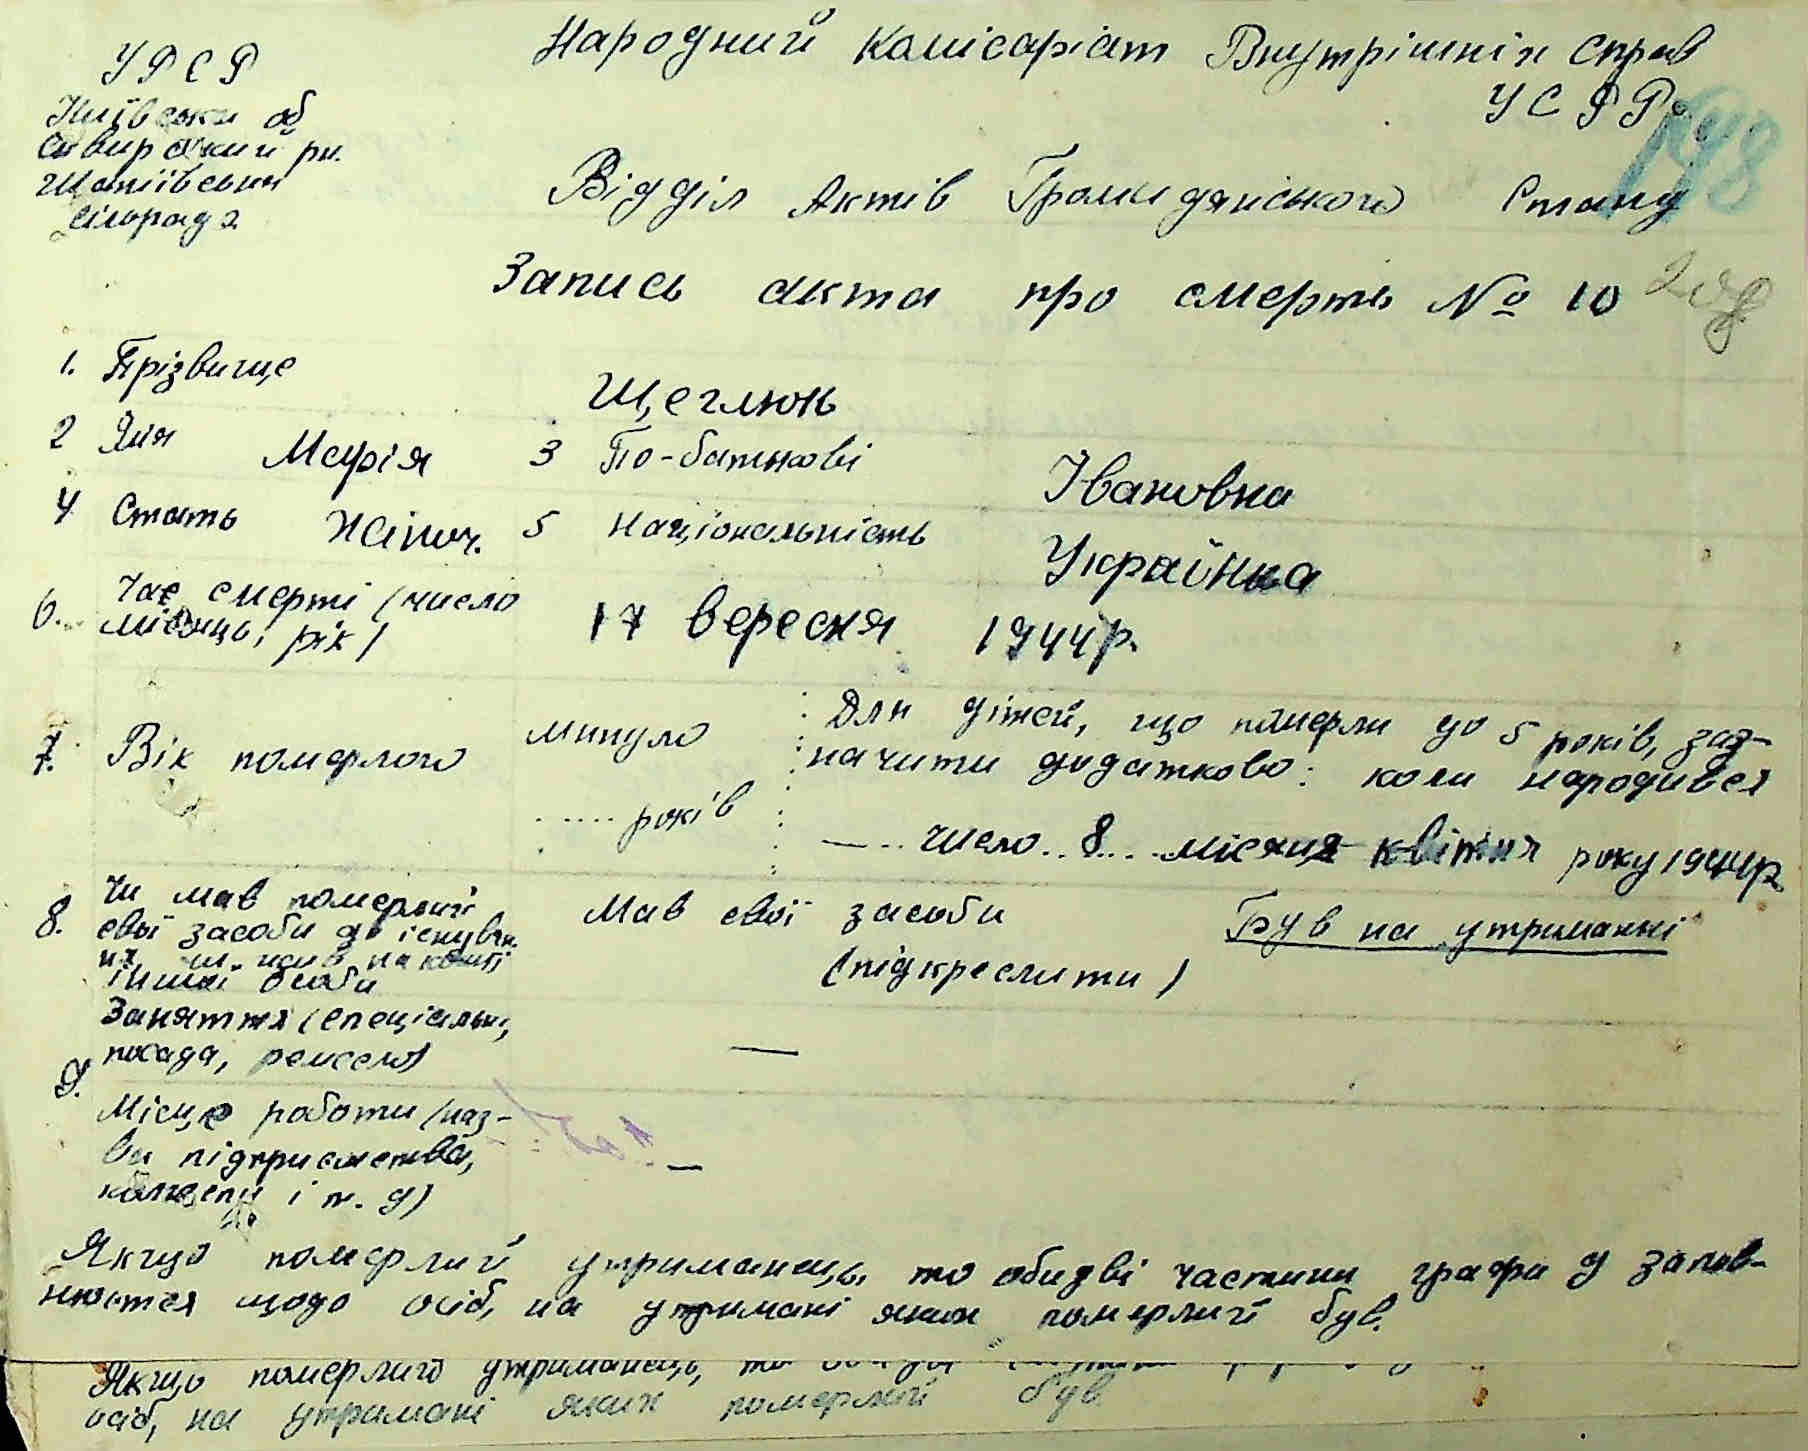 Народний Комісаріат Внутрішніх Справ
УСРР
УРСР
Київська об
Сквирський рн.
сільрада
Відділ Актів Громадянського Стану
198
Запись акта про смерть № 10
1. Прізвище Щеглюнь
2 Імя Марія 3 По-батькові Івановна
4 Стать Жіноч. 5 Національність Українка
6. Час смерті (число
місяць, рік) 17 вересня 1944р.
7. Вік померлого минуло
..... років
Для дітей, що померли до 5 років, заз-
начити додатково: коли народився
— .. число .. 8 ... місяця квітня року 1944р
8. Чи мав померлий
свої засоби до існуван.
ня, чи жив на кошті
іншої особи
Мав свої засоби Був на утриманні
(підкреслити)
9. Заняття (спеціальн,
посада, ремесло) —
Місце работи (наз-
ва підприємства,
колгоспу і т. д) —
Якщо померлий утриманець, то обидві частини графи 9 запов-
нюются щодо осіб, на утримані яких померлий був.
Якщо померлий утриманець, то
осіб, на утримані яких померлий був